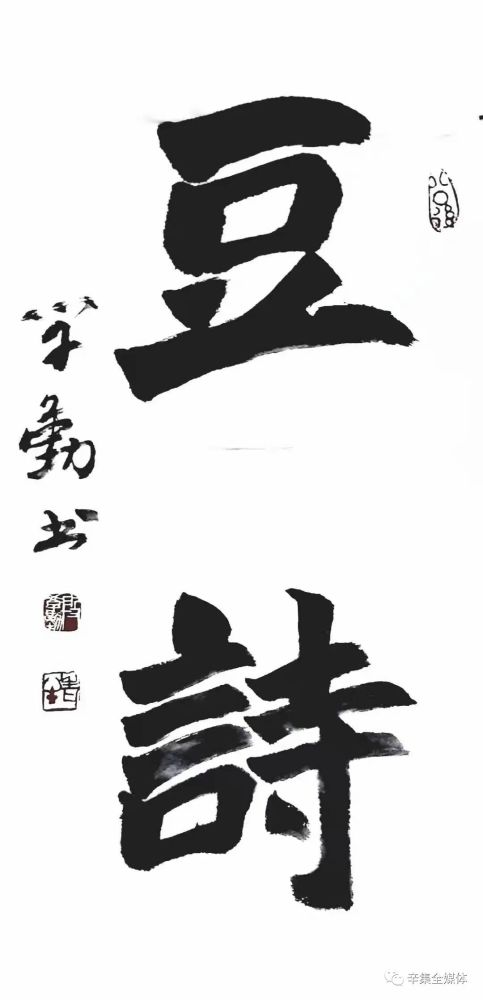 豆詩
学勤书
辛集全媒体